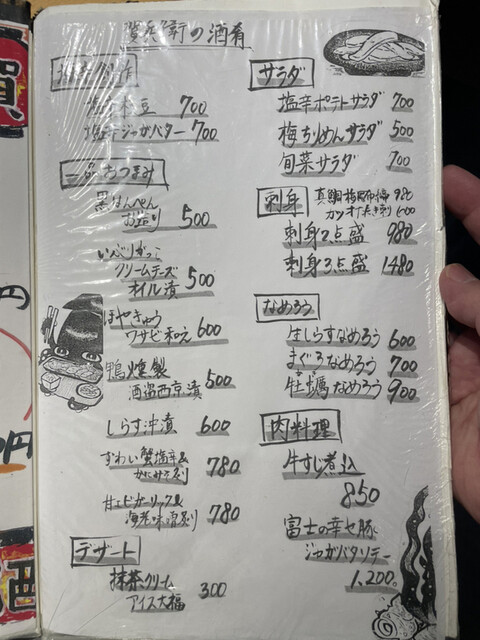 の酒肴
塩辛 豆 700
塩辛ジャガバター 700
二品おつまみ
黒はんぺん
お造り 500
いぶりがっこ
クリームチーズ
オイル漬 500
ほやきゅう
ワサビ和え 600
鴨燻製
酒盗西京漬 500
しらす沖漬 600
ずわい蟹塩辛&
かにみそ炙り 780
甘エビガーリック&
海老味噌炙り 780
デザート
抹茶クリーム
アイス大福 300
サラダ
塩辛ポテトサラダ 700
梅ちりめんサラダ 500
旬菜サラダ 700
刺身
真鯛梅昆布 980
カツオたたき刺 600
刺身2点盛 980
刺身3点盛 1480
なめろう
生しらすなめろう 600
まぐろなめろう 700
牡蠣なめろう 900
肉料理
牛すじ煮込
850
富士の幸セ豚
ジャガバタソテー
1,200
円